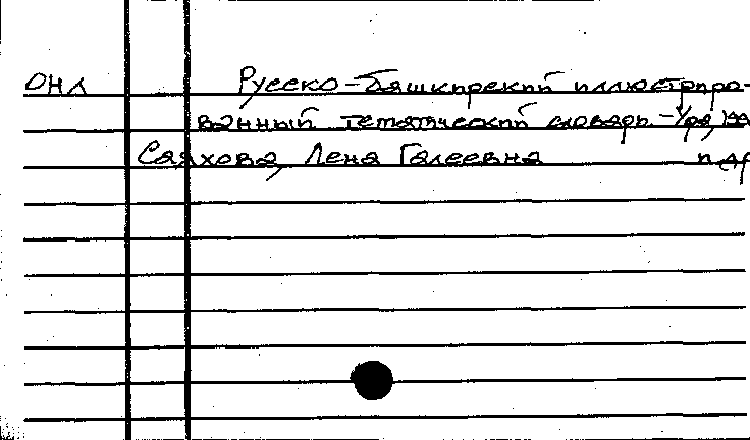 ОНЛ Русско-башкирский иллюстриро-
ванный тематический словарь. - Уфа,
Саяхова, Лена Галеевна и др